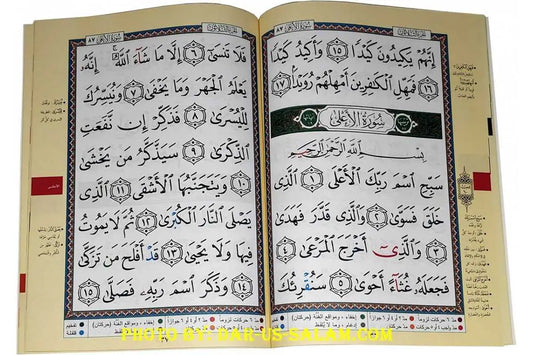 سُورَةُ الأَعْلَى ٨٧
إِنَّهُمْ يَكِيدُونَ كَيْدًا ﴿١٥﴾ وَأَكِيدُ كَيْدًا
﴿١٦﴾ فَمَهِّلِ الْكَافِرِينَ أَمْهِلْهُمْ رُوَيْدًا ﴿١٧﴾
سُورَةُ الأَعْلَى
بِسْمِ اللَّهِ الرَّحْمَٰنِ الرَّحِيمِ
سَبِّحِ اسْمَ رَبِّكَ الْأَعْلَى ﴿١﴾ الَّذِي
خَلَقَ فَسَوَّىٰ ﴿٢﴾ وَالَّذِي قَدَّرَ فَهَدَىٰ
﴿٣﴾ وَالَّذِي أَخْرَجَ الْمَرْعَىٰ ﴿٤﴾
فَجَعَلَهُ غُثَاءً أَحْوَىٰ ﴿٥﴾ سَنُقْرِئُكَ
سُورَةُ الأَعْلَى ٨٧
فَلَا تَنسَىٰ ﴿٦﴾ إِلَّا مَا شَاءَ اللَّهُ إِنَّهُ
يَعْلَمُ الْجَهْرَ وَمَا يَخْفَىٰ ﴿٧﴾ وَنُيَسِّرُكَ
لِلْيُسْرَىٰ ﴿٨﴾ فَذَكِّرْ إِن نَّفَعَتِ
الذِّكْرَىٰ ﴿٩﴾ سَيَذَّكَّرُ مَن يَخْشَىٰ
﴿١٠﴾ وَيَتَجَنَّبُهَا الْأَشْقَى ﴿١١﴾ الَّذِي
يَصْلَى النَّارَ الْكُبْرَىٰ ﴿١٢﴾ ثُمَّ لَا يَمُوتُ
فِيهَا وَلَا يَحْيَىٰ ﴿١٣﴾ قَدْ أَفْلَحَ مَن تَزَكَّىٰ
﴿١٤﴾ وَذَكَرَ اسْمَ رَبِّهِ فَصَلَّىٰ ﴿١٥﴾
PHOTO BY: DAR-US-SALAM.COM